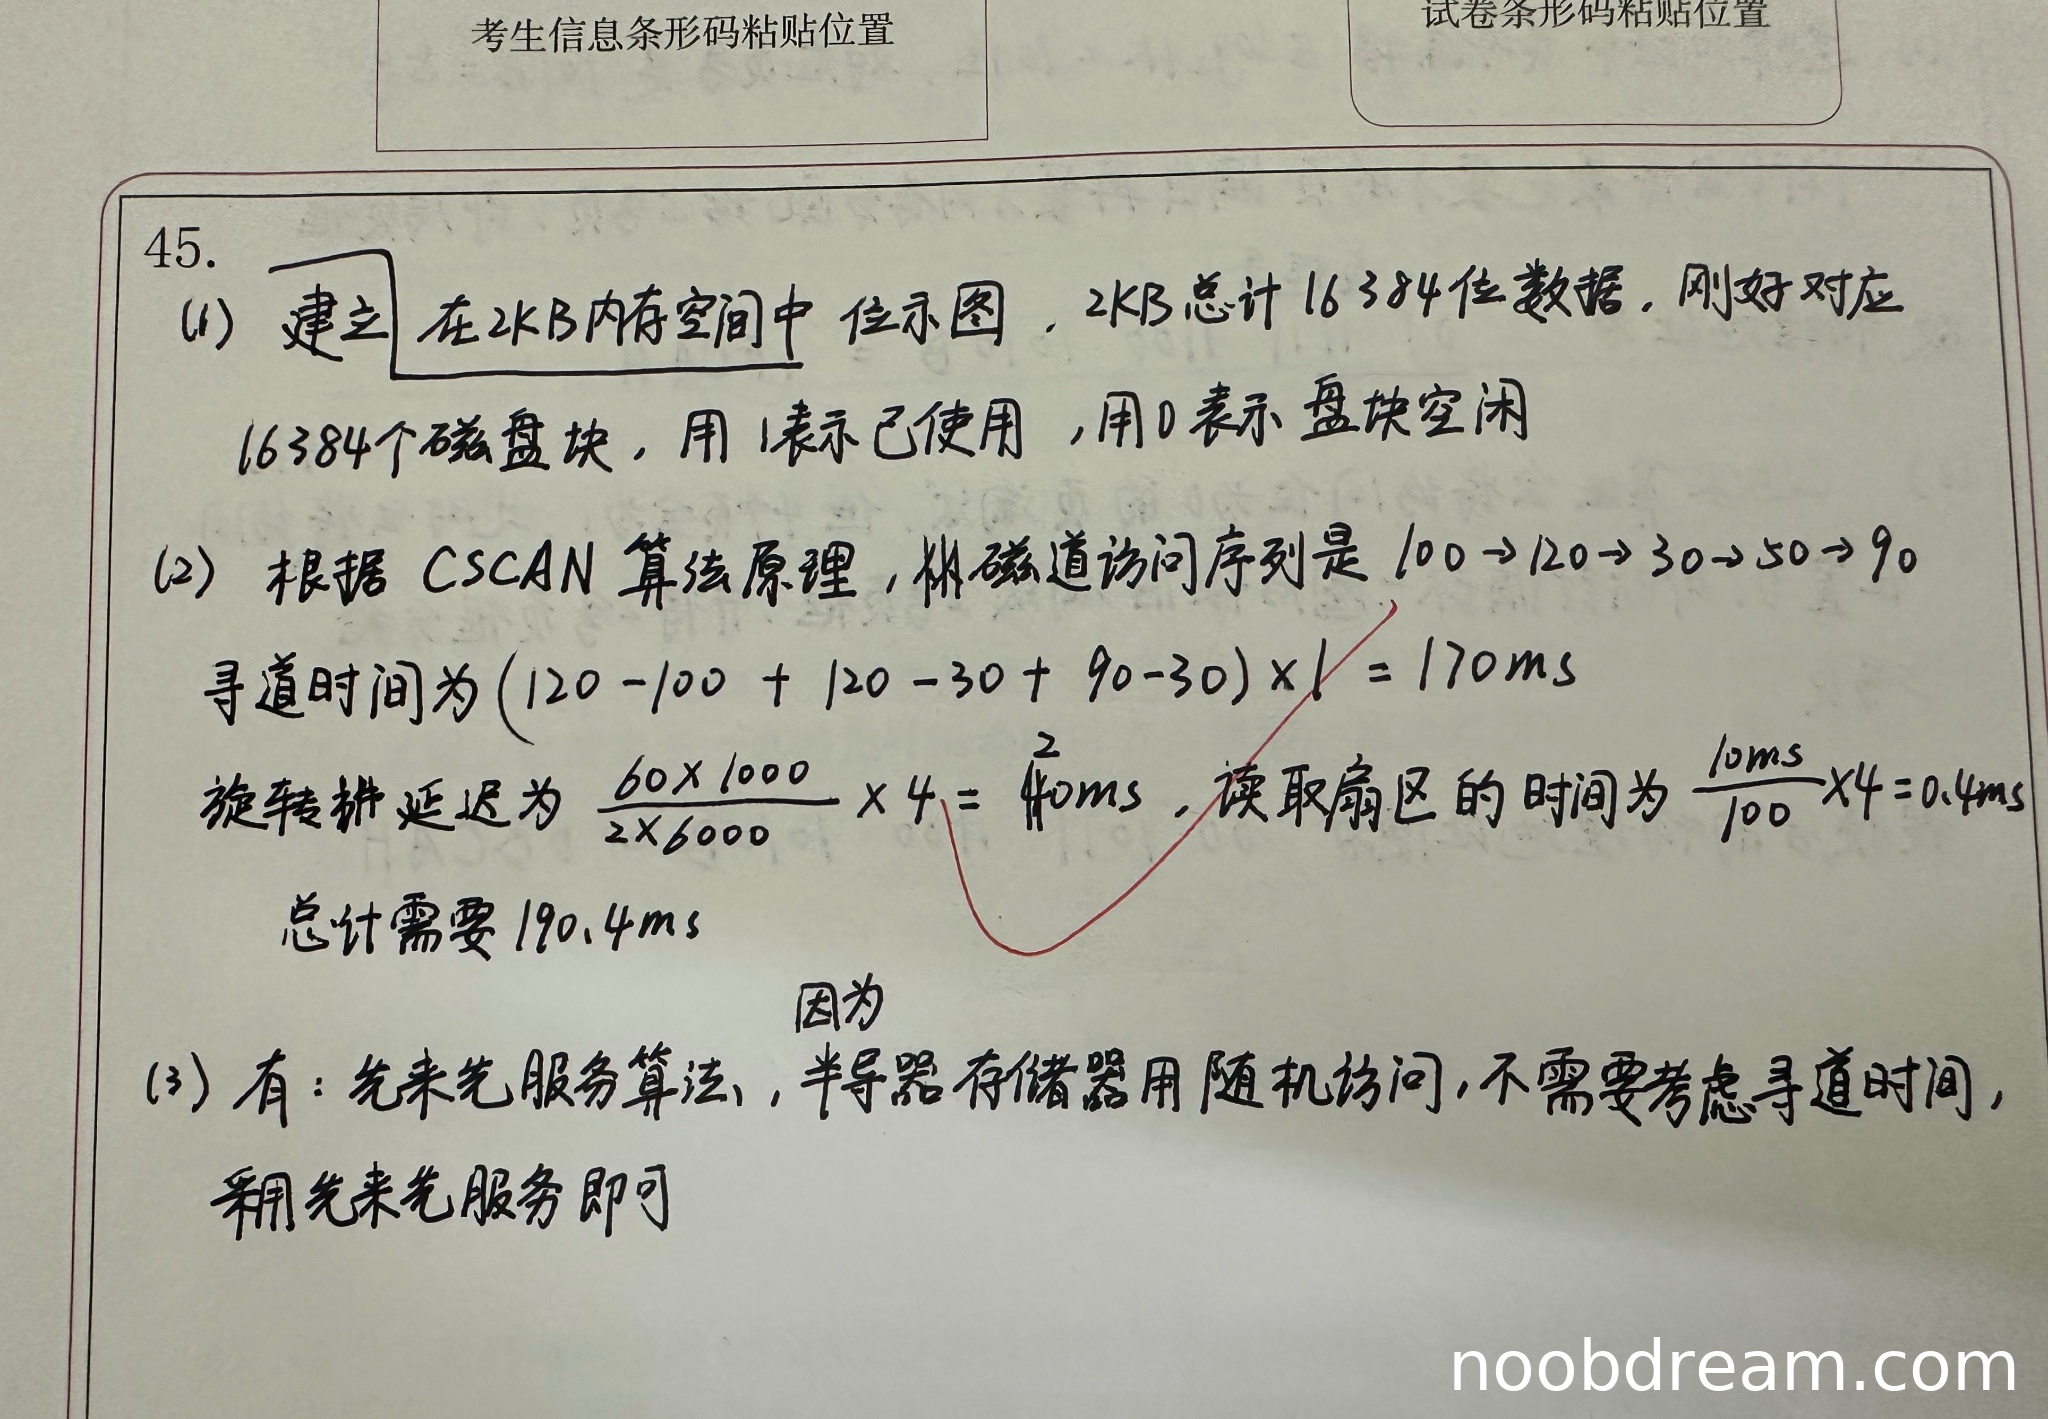 考生信息条形码粘贴位置
试卷条形码粘贴位置
45.
(1) 建立 在2KB内存空间中 位示图，2KB总计16384位数据，刚好对应
16384个磁盘块，用1表示已使用，用0表示盘块空闲
(2) 根据 CSCAN 算法原理，磁道访问序列是 100→120→30→50→90
寻道时间为(120-100 + 120-30 + 90-30)×1 = 170ms
旋转延迟为 60×1000/2×6000 ×4 = 20ms，读取扇区的时间为 10ms/100 ×4=0.4ms
总计需要190.4ms
(3) 有：先来先服务算法，因为半导器存储器用随机访问，不需要考虑寻道时间，
采用先来先服务即可
noobdream.com